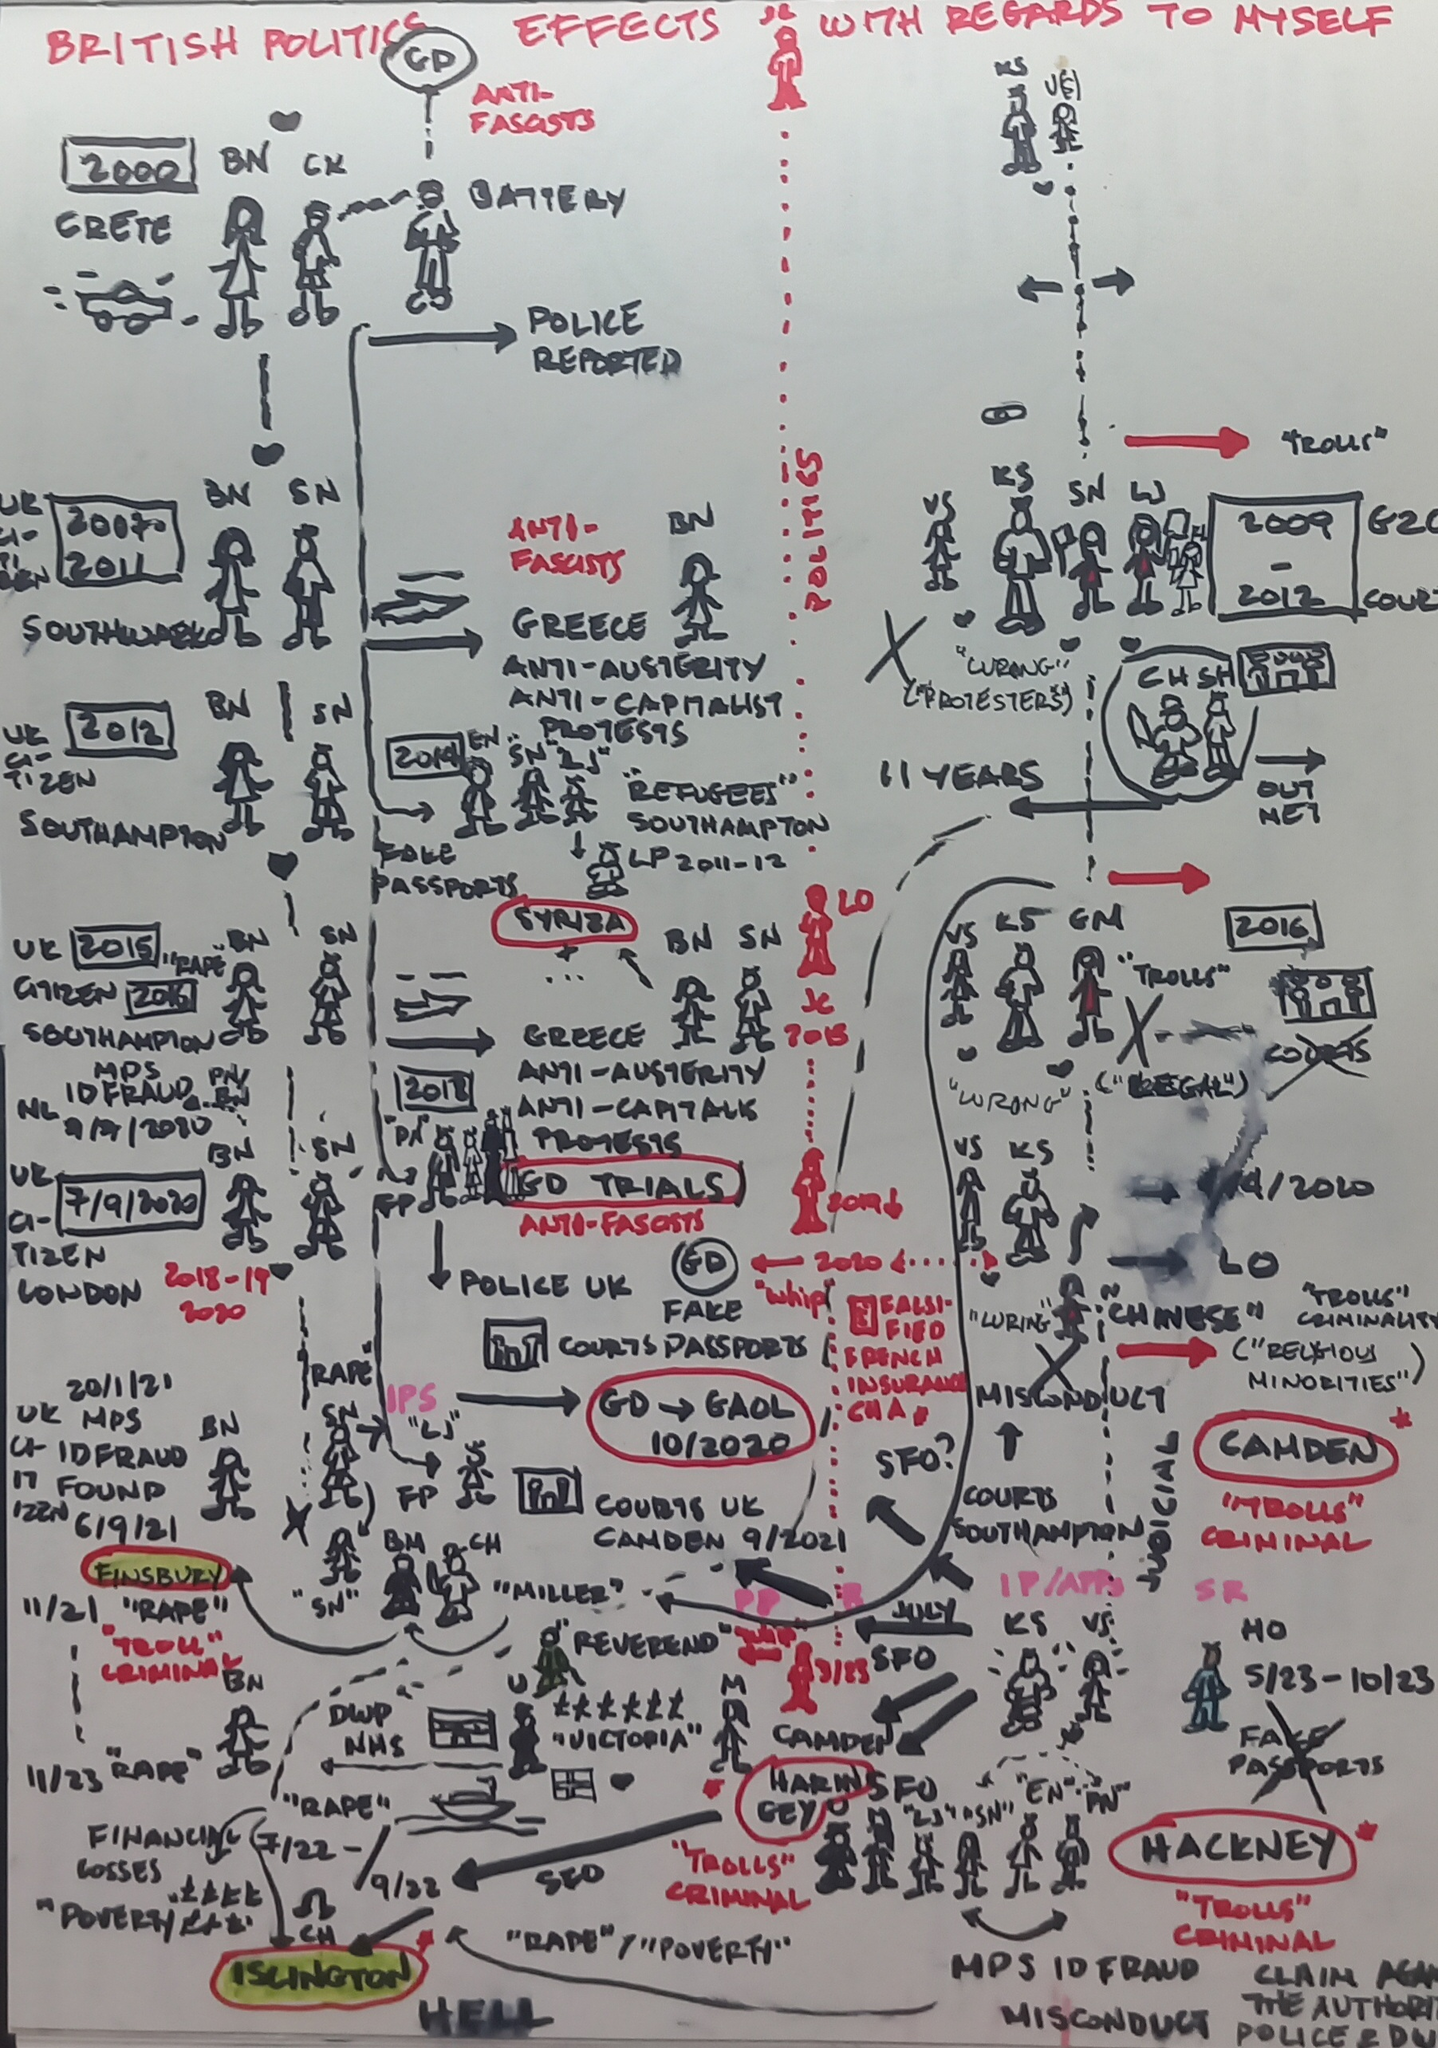 BRITISH POLITICS EFFECTS JC WITH REGARDS TO MYSELF
GD
ANTI-
FASCISTS
KS
VS
2000
BN
CK
CRETE
BATTERY
POLICE
REPORTED
"TROLLS"
UK
CI-
TI
ZEN
2007-
2011
BN
SN
SOUTHWARK
ANTI-
FASCISTS
BN
GREECE
ANTI-AUSTERITY
ANTI-CAPITALIST
PROTESTS
POLITICS
VS
KS
SN
LJ
2009
-
2012
G20
COURT
"WRONG"
("PROTESTERS")
CH SH
OUT
NET
11 YEARS
UK
CI-
TIZEN
2012
BN
SN
SOUTHAMPTON
2014
EN
"SN"
"LJ"
"REFUGEES"
SOUTHAMPTON
FAKE
PASSPORTS
LP 2011-12
SYRIZA
LO
JC
2015
UK
CITIZEN
2015
2016
"RAPE"
BN
SN
SOUTHAMPTON
BN
SN
GREECE
ANTI-AUSTERITY
ANTI-CAPITALK
PROTESTS
VS
KS
GM
"TROLLS"
2016
COURTS
"WRONG"
MPS
ID FRAUD
PN/
BN
NL 9/9/2020
2018
"PN"
FP
GD TRIALS
ANTI-FASCISTS
2019
UK
CI-
TIZEN
LONDON
7/9/2020
BN
SN
2018-19
2020
POLICE UK
GD
FAKE
PASSPORTS
COURTS
2020
"WHIP"
FALSI-
FIED
FRENCH
INSURANCE
CHA
VS
KS
4/2020
LO
"LURING"
"CHINESE"
"TROLLS"
CRIMINALITY
("RELIGIOUS
MINORITIES")
MISCONDUCT
"RAPE"
IPS
GD → GAOL
10/2020
20/1/21
UK
CI-
TI
ZEN
MPS
ID FRAUD
FOUND
6/9/21
BN
SN
"LJ"
FP
COURTS UK
CAMDEN 9/2021
SFO?
COURTS
SOUTHAMPTON
JUDICIAL
CAMDEN
"TROLLS"
CRIMINAL
FINSBURY
"SN"
BM
CH
"MILLER"
11/21 "RAPE"
"TROLL"
CRIMINAL
PP
"WHIP"
JULY
SFO
3/23
IP/APPs
KS
VS
SR
HO
5/23-10/23
FAKE
PASSPORTS
"REVEREND"
"VICTORIA"
U
M
DWP
NHS
BN
11/23 "RAPE"
CAMDEN
HARIN
GEY
SFO
"LJ"
"SN"
"EN"
"PN"
"TROLLS"
CRIMINAL
HACKNEY
"TROLLS"
CRIMINAL
FINANCIAL
LOSSES
"POVERTY"
"RAPE"
7/22 -
9/22
SFO
CH
ISLINGTON
"RAPE" / "POVERTY"
HELL
MPS ID FRAUD
MISCONDUCT
CLAIM AGAIN
THE AUTHORIT
POLICE & DW